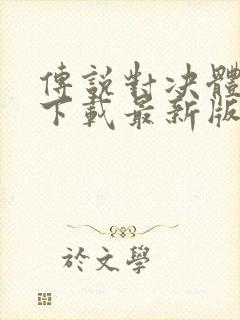 傳說對決體
下載最新版
於文學